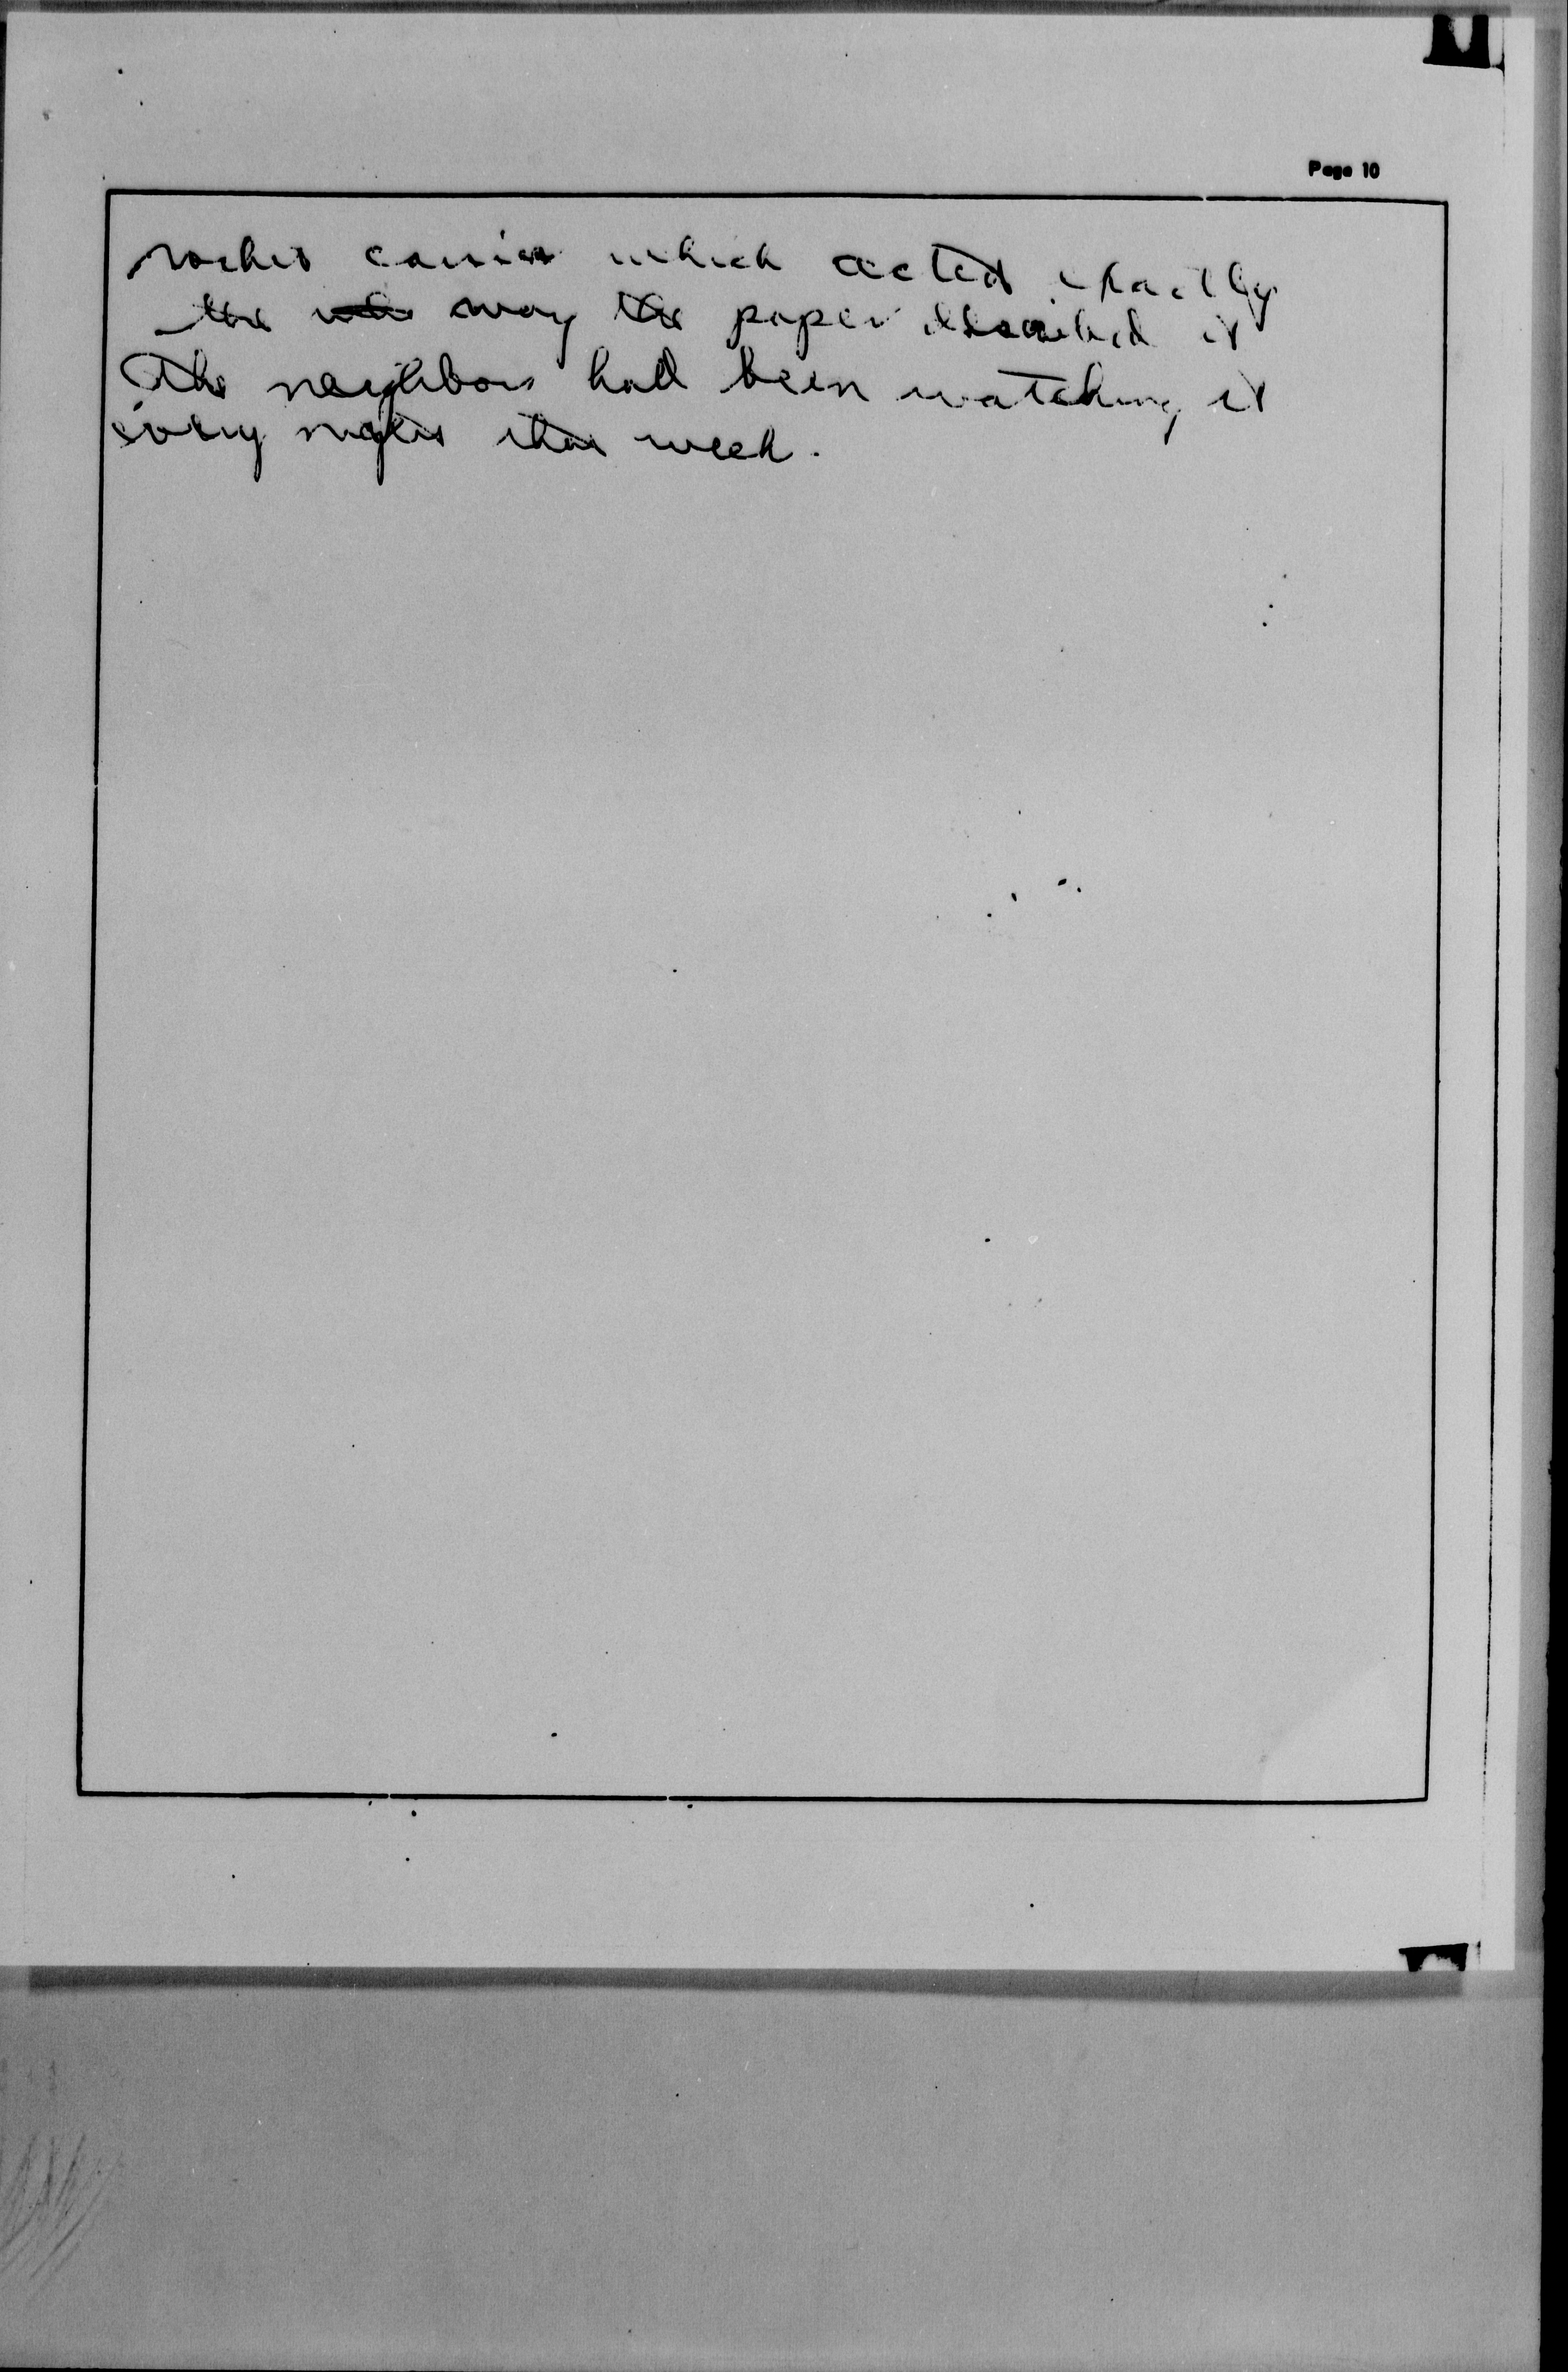 Page 10
rocket carrier which acted exactly
the way the paper described it
The neighbors had been watching it
every night this week.